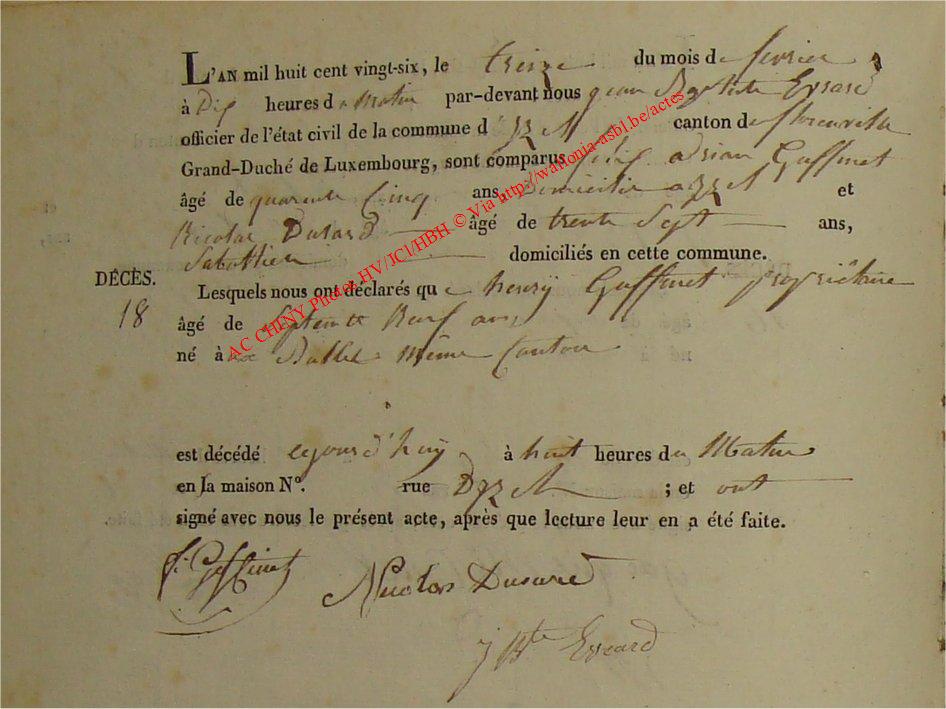 L'AN mil huit cent vingt-six, le treize du mois de fevrier
à Dix heures du Matin par-devant nous jean Baptiste Evrard
officier de l'état civil de la commune d'Izel canton de florenville
Grand-Duché de Luxembourg, sont comparus adrian Goffinet
âgé de quarente Cinq ans Domicilie a izel et
Nicolas Dusard âgé de trente Sept ans,
Sabottier domiciliés en cette commune.
DÉCÈS.
18
Lesquels nous ont déclarés que henry Goffinet propriétaire
âgé de Septente Neuf ans
né à même Canton
est décédé cejourd'huy à huit heures du Matin
en la maison N°. rue D'izel ; et ont
signé avec nous le présent acte, après que lecture leur en a été faite.
Goffinet
Nicolas Dusard
J Bte Evrard
AC CHINY Photos HV/JCl/HBH © Via http://wallonia-asbl.be/actes